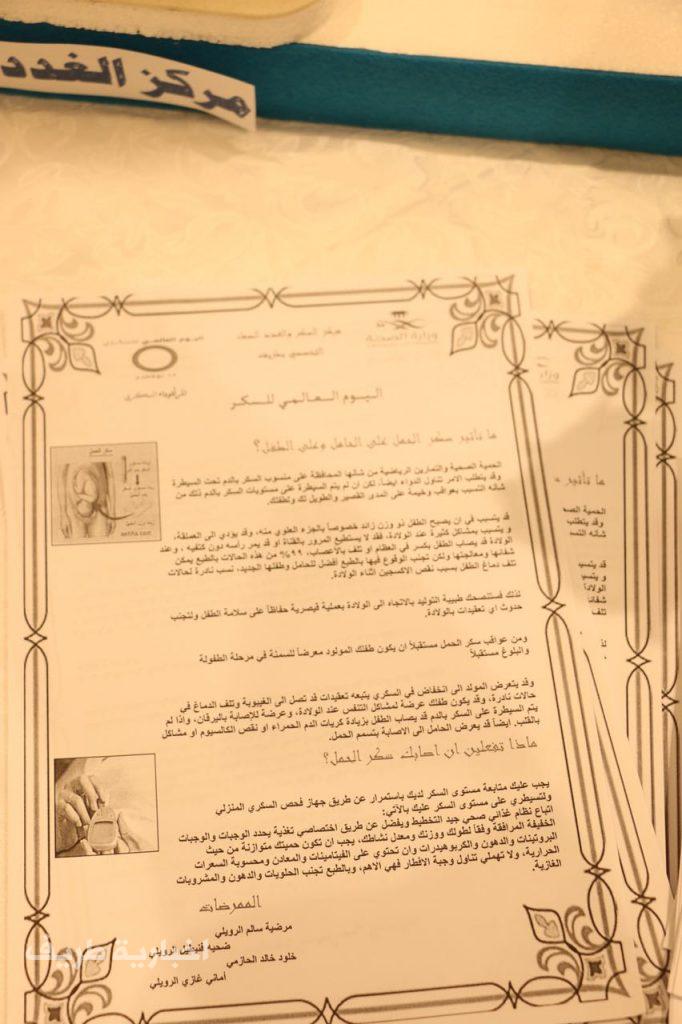 مركز الغدد
وزارة الصحة
مركز السكر والغدد الصماء
التخصصي بطريف
اليوم العالمي للسكري
اليوم العالمي للسكر
ما تأثير سكر الحمل على الحامل وعلى الطفل؟
الحمية الصحية والتمارين الرياضية من شأنها المحافظة على منسوب السكر بالدم تحت السيطرة
وقد يتطلب الامر تناول الدواء ايضاً، لكن ان لم يتم السيطرة على مستويات السكر بالدم ذلك من
شأنه التسبب بعواقب وخيمة على المدى القصير والطويل لك ولطفلك.
قد يتسبب في ان يصبح الطفل ذو وزن زائد خصوصاً بالجزء العلوي منه، وقد يؤدي الى العملقة،
و يتسبب بمشاكل كثيرة عند الولادة، فقد لا يستطيع المرور بالقناة او قد يمر رأسه دون كتفيه ، وعند
الولادة قد يصاب الطفل بكسر في العظام او تلف بالأعصاب، ٩٩% من هذه الحالات بالطبع يمكن
شفائها ومعالجتها ولكن تجنب الوقوع فيها بالطبع افضل للحامل وطفلها الجديد، نسب نادرة لحالات
تلف دماغ الطفل بسبب نقص الاكسجين اثناء الولادة.
لذلك فستنصحك طبيبة التوليد بالاتجاه الى الولادة بعملية قيصرية حفاظاً على سلامة الطفل ولتجنب
حدوث اي تعقيدات بالولادة.
ومن عواقب سكر الحمل مستقبلاً ان يكون طفلك المولود معرضاً للسمنة في مرحلة الطفولة
والبلوغ مستقبلاً
وقد يتعرض المولد الى انخفاض في السكري يتبعه تعقيدات قد تصل الى الغيبوبة وتلف الدماغ في
حالات نادرة، وقد يكون طفلك عرضة لمشاكل التنفس عند الولادة، وعرضة للإصابة باليرقان، واذا لم
يتم السيطرة على السكر بالدم قد يصاب الطفل بزيادة كريات الدم الحمراء او نقص الكالسيوم او مشاكل
بالقلب. ايضاً قد يعرض الحامل الى الاصابة بتسمم الحمل.
ماذا تفعلين ان اصابك سكر الحمل؟
يجب عليك متابعة مستوى السكر لديك باستمرار عن طريق جهاز فحص السكري المنزلي
ولتسيطري على مستوى السكر عليك بالآتي:
اتباع نظام غذائي صحي جيد التخطيط ويفضل عن طريق اختصاصي تغذية يحدد الوجبات والوجبات
الخفيفة المرافقة وفقاً لطولك ووزنك ومعدل نشاطك، يجب ان تكون حميتك متوازنة من حيث
البروتينات والدهون والكربوهيدرات وان تحتوي على الفيتامينات والمعادن ومحسوبة السعرات
الحرارية، ولا تهملي تناول وجبة الافطار فهي الاهم، وبالطبع تجنب الحلويات والدهون والمشروبات
الغازية.
الممرضات
مرضية سالم الرويلي
ضحية قنيطيل الرويلي
خلود خالد الحازمي
أماني غازي الرويلي
اخبارية طريف